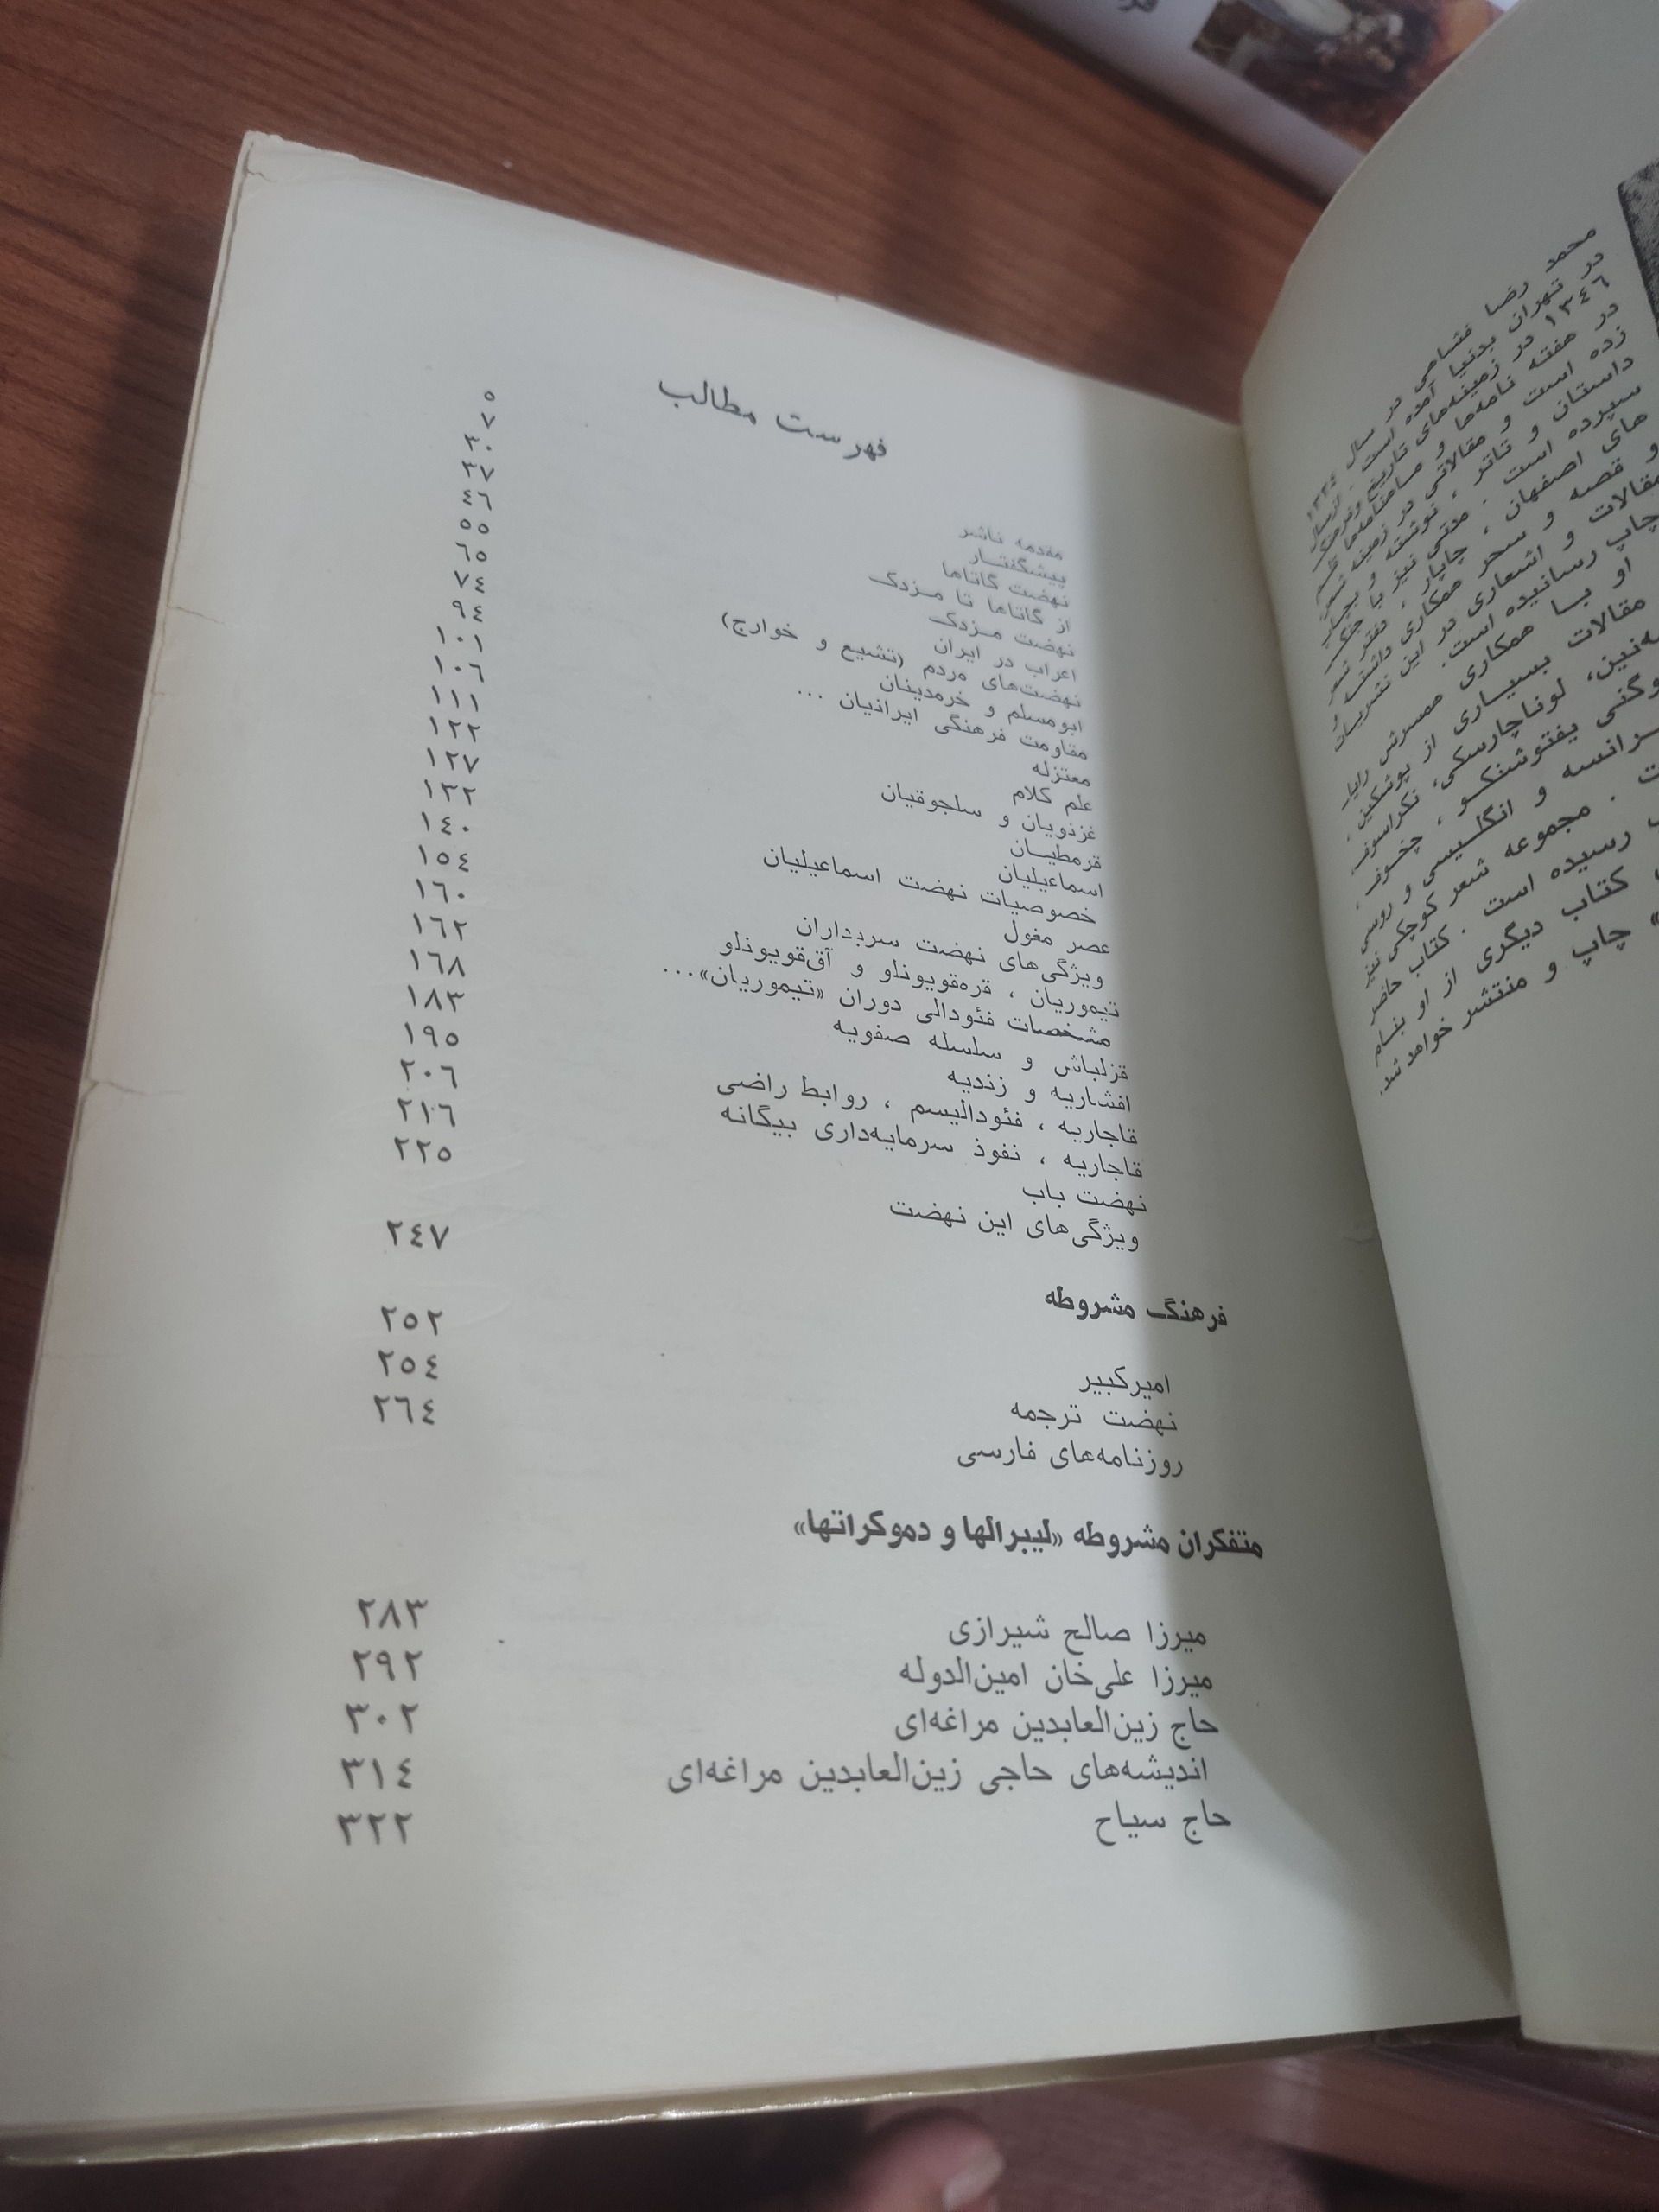 محمد رضا فشاهی در سال ۱۳۲٤
در تهران بدنیا آمده است . از سال
۱۳٤٦ در زمینه‌های تاریخ و فرهنگ
در هفته نامه‌ها و ماهنامه‌ها قلم
زده است و مقالاتی در زمینه شعر،
داستان و تاتر ، نوشته و بچاپ
سپرده است . مدتی نیز با جنگ
های اصفهان ، چاپار ، دفتر شعر
و قصه و سحر همکاری داشت و
مقالات و اشعاری در این نشریات
چاپ رسانیده است.
او با همکاری همسرش
مقالات بسیاری از پوشکین ،
لوناچارسکی، نکراسوف،
یفتوشنکو ، چخوف ،
فرانسه و انگلیسی و روسی
مجموعه شعر کوچکی نیز
رسیده است . کتاب حاضر
کتاب دیگری از او بنام
چاپ و منتشر خواهد شد.
فهرست مطالب
مقدمه ناشر ۵
پیشگفتار ۷
نهضت گاتاها ۳۰
از گاتاها تا مزدک ۳۷
نهضت مزدک ٤٦
اعراب در ایران ۵۵
نهضت‌های مردم (تشیع و خوارج) ٦۵
ابومسلم و خرمدینان ۷٤
مقاومت فرهنگی ایرانیان ... ۹٤
معتزله ۱۰۱
علم کلام ۱۰٦
غزنویان و سلجوقیان ۱۱۱
قرمطیان ۱۲۲
اسماعیلیان ۱۲۷
خصوصیات نهضت اسماعیلیان ۱۳۲
عصر مغول ۱٤۰
ویژگی‌های نهضت سربداران ۱۵٤
تیموریان ، قره‌قویونلو و آق‌قویونلو ۱٦۰
مشخصات فئودالی دوران «تیموریان»... ۱٦۲
قزلباش و سلسله صفویه ۱٦۸
افشاریه و زندیه ۱۸۳
قاجاریه ، فئودالیسم ، روابط راضی ۱۹۵
قاجاریه ، نفوذ سرمایه‌داری بیگانه ۲۰٦
نهضت باب ۲۱٦
ویژگی‌های این نهضت ۲۲۵
فرهنگ مشروطه ۲٤۷
امیرکبیر ۲۵۲
نهضت ترجمه ۲۵٤
روزنامه‌های فارسی ۲٦٤
متفکران مشروطه «لیبرالها و دموکراتها»
میرزا صالح شیرازی ۲۸۳
میرزا علی‌خان امین‌الدوله ۲۹۲
حاج زین‌العابدین مراغه‌ای ۳۰۲
اندیشه‌های حاجی زین‌العابدین مراغه‌ای ۳۱٤
حاج سیاح ۳۲۲